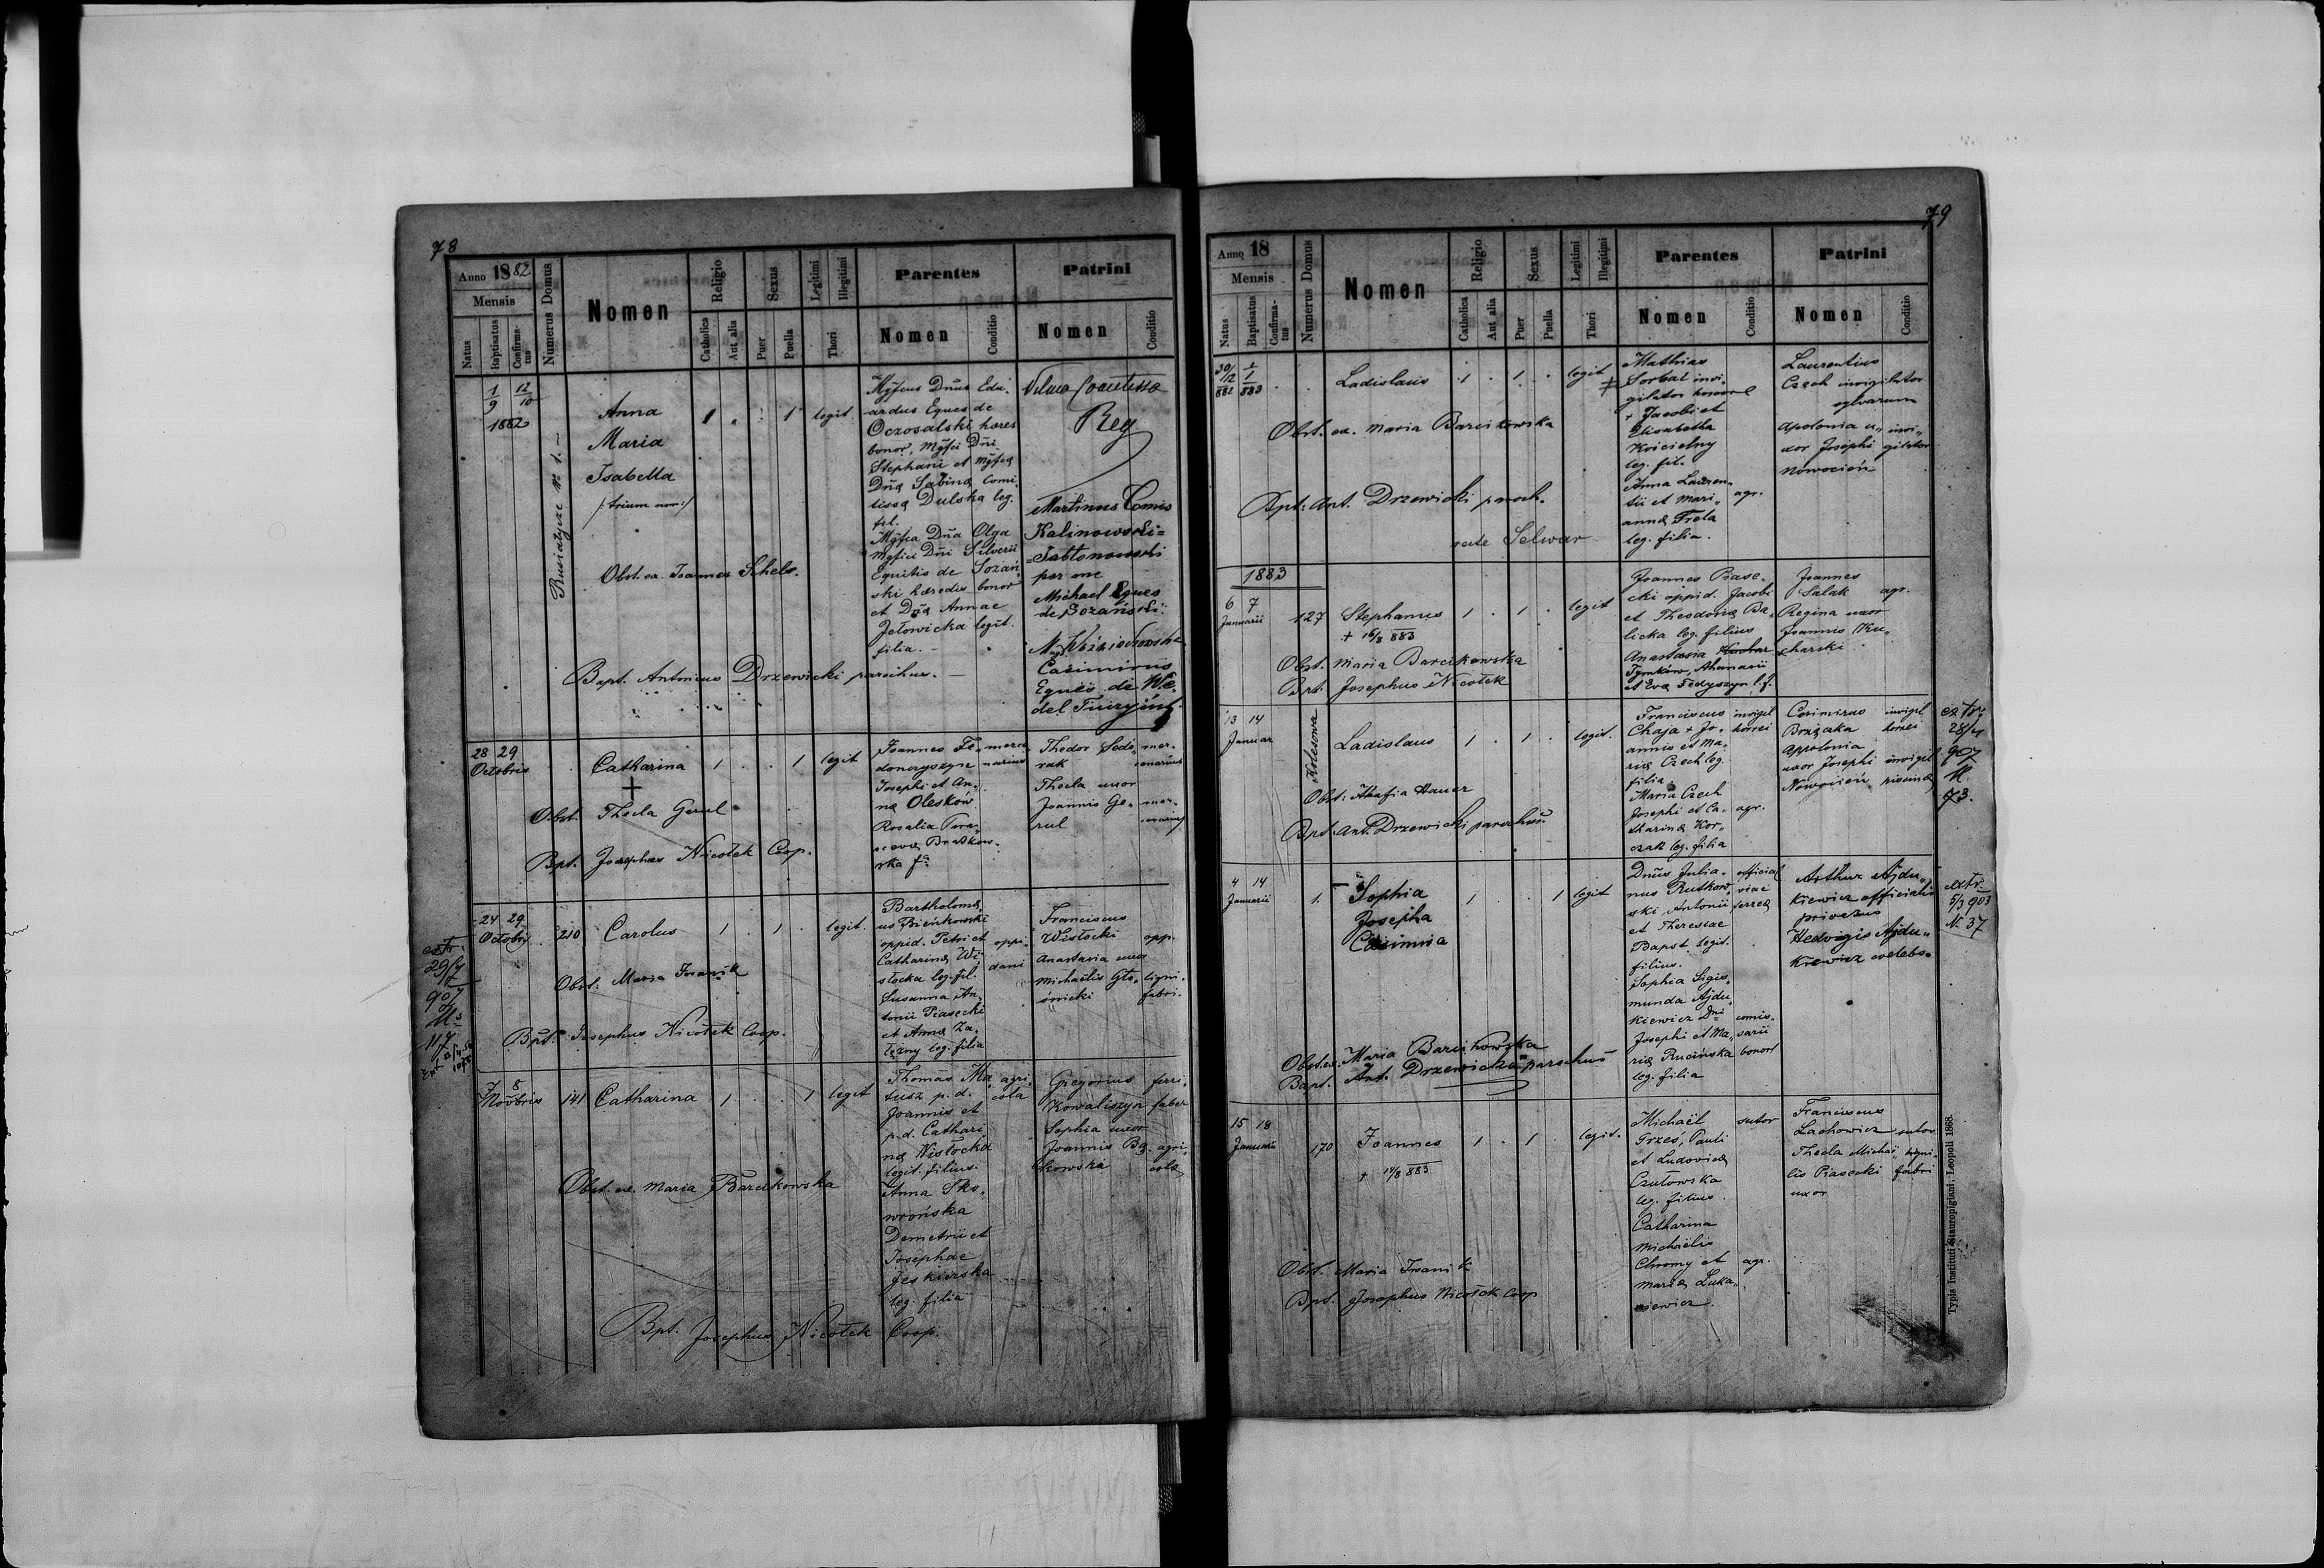 78
Anno 1882
Mensis
Natus
Baptisatus
Confirma-
tus
Numerus Domus
Nomen
Religio
Catholica
Aut. alia
Sexus
Puer
Puella
Legitimi
Illegitimi
Thori
Parentes
Nomen
Conditio
Patrini
Nomen
Conditio
1/9 12/10
1882
Rusiatycze № 1.
Anna
Maria
Isabella
/: trium nom:/
1 1 legit
Obst. ex. Joanna Schelz.
Bapt. Antonius Drzewicki parochus.
Mgfcus Dnus Edu-
ardus Eques de
Oczosalski hæres
bonor, Mgfci Dni
Stephani et Mgfcæ
Dnæ Sabinæ Comi-
tissæ Dulska leg.
fil.
Mgfca Dna Olga
Mgfici Dni Silverii
Equitis de Sozań-
ski hæredis bonor
et Dnæ Annae
Jełowicka legit.
filia.
Comitissa
Rey
Martinus Comes
Kalinowski=
=Jabłonowski
per me
Michael Eques
de Sozański
Casimirus
Eques de We-
del
28 29
Octobris
Catharina
1 1 legit
Obst. Thecla Gerul
Bpt. Josephus Nicołek Coop.
Joannes Fe-
donczyszyn
Josephi et An-
næ Olesków
Rosalia
ska fa
merce-
narius
Thedor
rak
Thecla uxor
Joannis Ge-
rul
mer-
cenarius
mer-
cenarius
24 29
Octobris
210
Carolus
1 1 legit.
Obst. Maria Iwanik
Bpt. Josephus Nicołek Coop.
Bartholomæ-
us Bieńkowski
oppid. Petri et
Catharinæ Wi-
słocka leg. fil.
Susanna An-
tonii Piasecki
et Annæ Za-
łężny leg. filia
oppi-
dani
Franciscus
Wisłocki
Anastasia uxor
Michaëlis Gło-
wnicki
opp.
ligni-
fabri.
extr.
29/7
907
№
117
7 8
Novbris
141
Catharina
1 1 legit
Obst. ex. Maria Barcikowska
Bpt. Josephus Nicołek Coop.
Thomas Ma-
tusz p. d.
Joannis et
p. d. Cathari
næ Wisłocka
legit. filius.
Anna Sko-
wrońska
Demetrii et
Josephae
Jeskierska
leg. filia
agri-
cola
Gregorius
Kowaliszyn
Sophia uxor
Joannis Bą-
kowska
ferri-
faber
agri-
cola
79
Anno 18
Mensis
Natus
Baptisatus
Confirma-
tus
Numerus Domus
Nomen
Religio
Catholica
Aut. alia
Sexus
Puer
Puella
Legitimi
Illegitimi
Thori
Parentes
Nomen
Conditio
Patrini
Nomen
Conditio
30/12 882
1/1 883
Ladislaus
1 1 legit
Obst. ex. Maria Barcikowska
Bpt. Ant. Drzewicki paroch.
recte Selwar
Mathias
Sorbal invi-
gilator
+ Jacobi et
Elisabetha
Kościelny
leg. fil.
Anna Lauren-
tii et Mari-
annæ Freta
leg. filia.
agr.
Laurentius
Czech invigilator
sylvarum
Apolonia u-
xor Josephi
Nowocień
invi-
gilator
1883
6 7
Januarii
127
Stephanus
+ 16/8 883
1 1 legit
Obst. Maria Barcikowska
Bpt. Josephus Nicołek
Joannes Piase-
cki oppid. Jacobi
et Theodoræ Ba-
licka leg. filius
Anastasia
Tymków, Athanasii
et Evæ Fedyszyn l. f.
Joannes
Salak agr.
Regina uxor
Joannis Ku-
charski
13 14
Januar
Kolesowa
Ladislaus
1 1 legit.
Obst. Ahafia Hauer
Bpt. Ant. Drzewicki parochus
Franciscus
Chaja + Jo-
annis et Ma-
riæ Czech leg.
filia.
Maria Czech
Josephi et Ca-
tharinæ Kor-
czak leg. filia
invigil
horrei
agr.
Casimirus
Apolonia
uxor Josephi
Nowocień
invigil
horrei
invigil
piscinæ
extr.
28/4
907
№
73.
4 14
Januarii
1.
Sophia
Josepha
Casimira
1 1 legit
Obst. ex. Maria Barcikowska
Bapt. Ant. Drzewicki parochus
Dnus Julia-
nus Rutkow-
ski, Antonii
et Theresiae
Bapst legit.
filius.
Sophia Sigis-
munda Ajdu-
kiewicz Dni
Josephi et Ma-
riæ Rucińska
leg. filia
official
viae
ferreæ
comis-
sarii
bonor
Arthur Ajdu-
kiewicz officialis
privatus
Hedvigis Ajdu-
kiewicz coelebs.
extr.
5/3 903
№ 37
15 18
Januarii
170
Joannes
+ 14/8 883
1 1 legit.
Obst. Maria Iwanik
Bpt. Josephus Nicołek Coop
Michaël
Grześ, Pauli
et Ludovicæ
Czułowska
leg. filius.
Catharina
Michaëlis
Chromy et
Mariæ Luka-
siewicz.
sutor
agr.
Franciscus
Lachowicz sutor
Thecla Michaë-
lis Piasecki
uxor
ligni-
fabri
Typis Instituti Stauropigiani, Leopoli 1868.